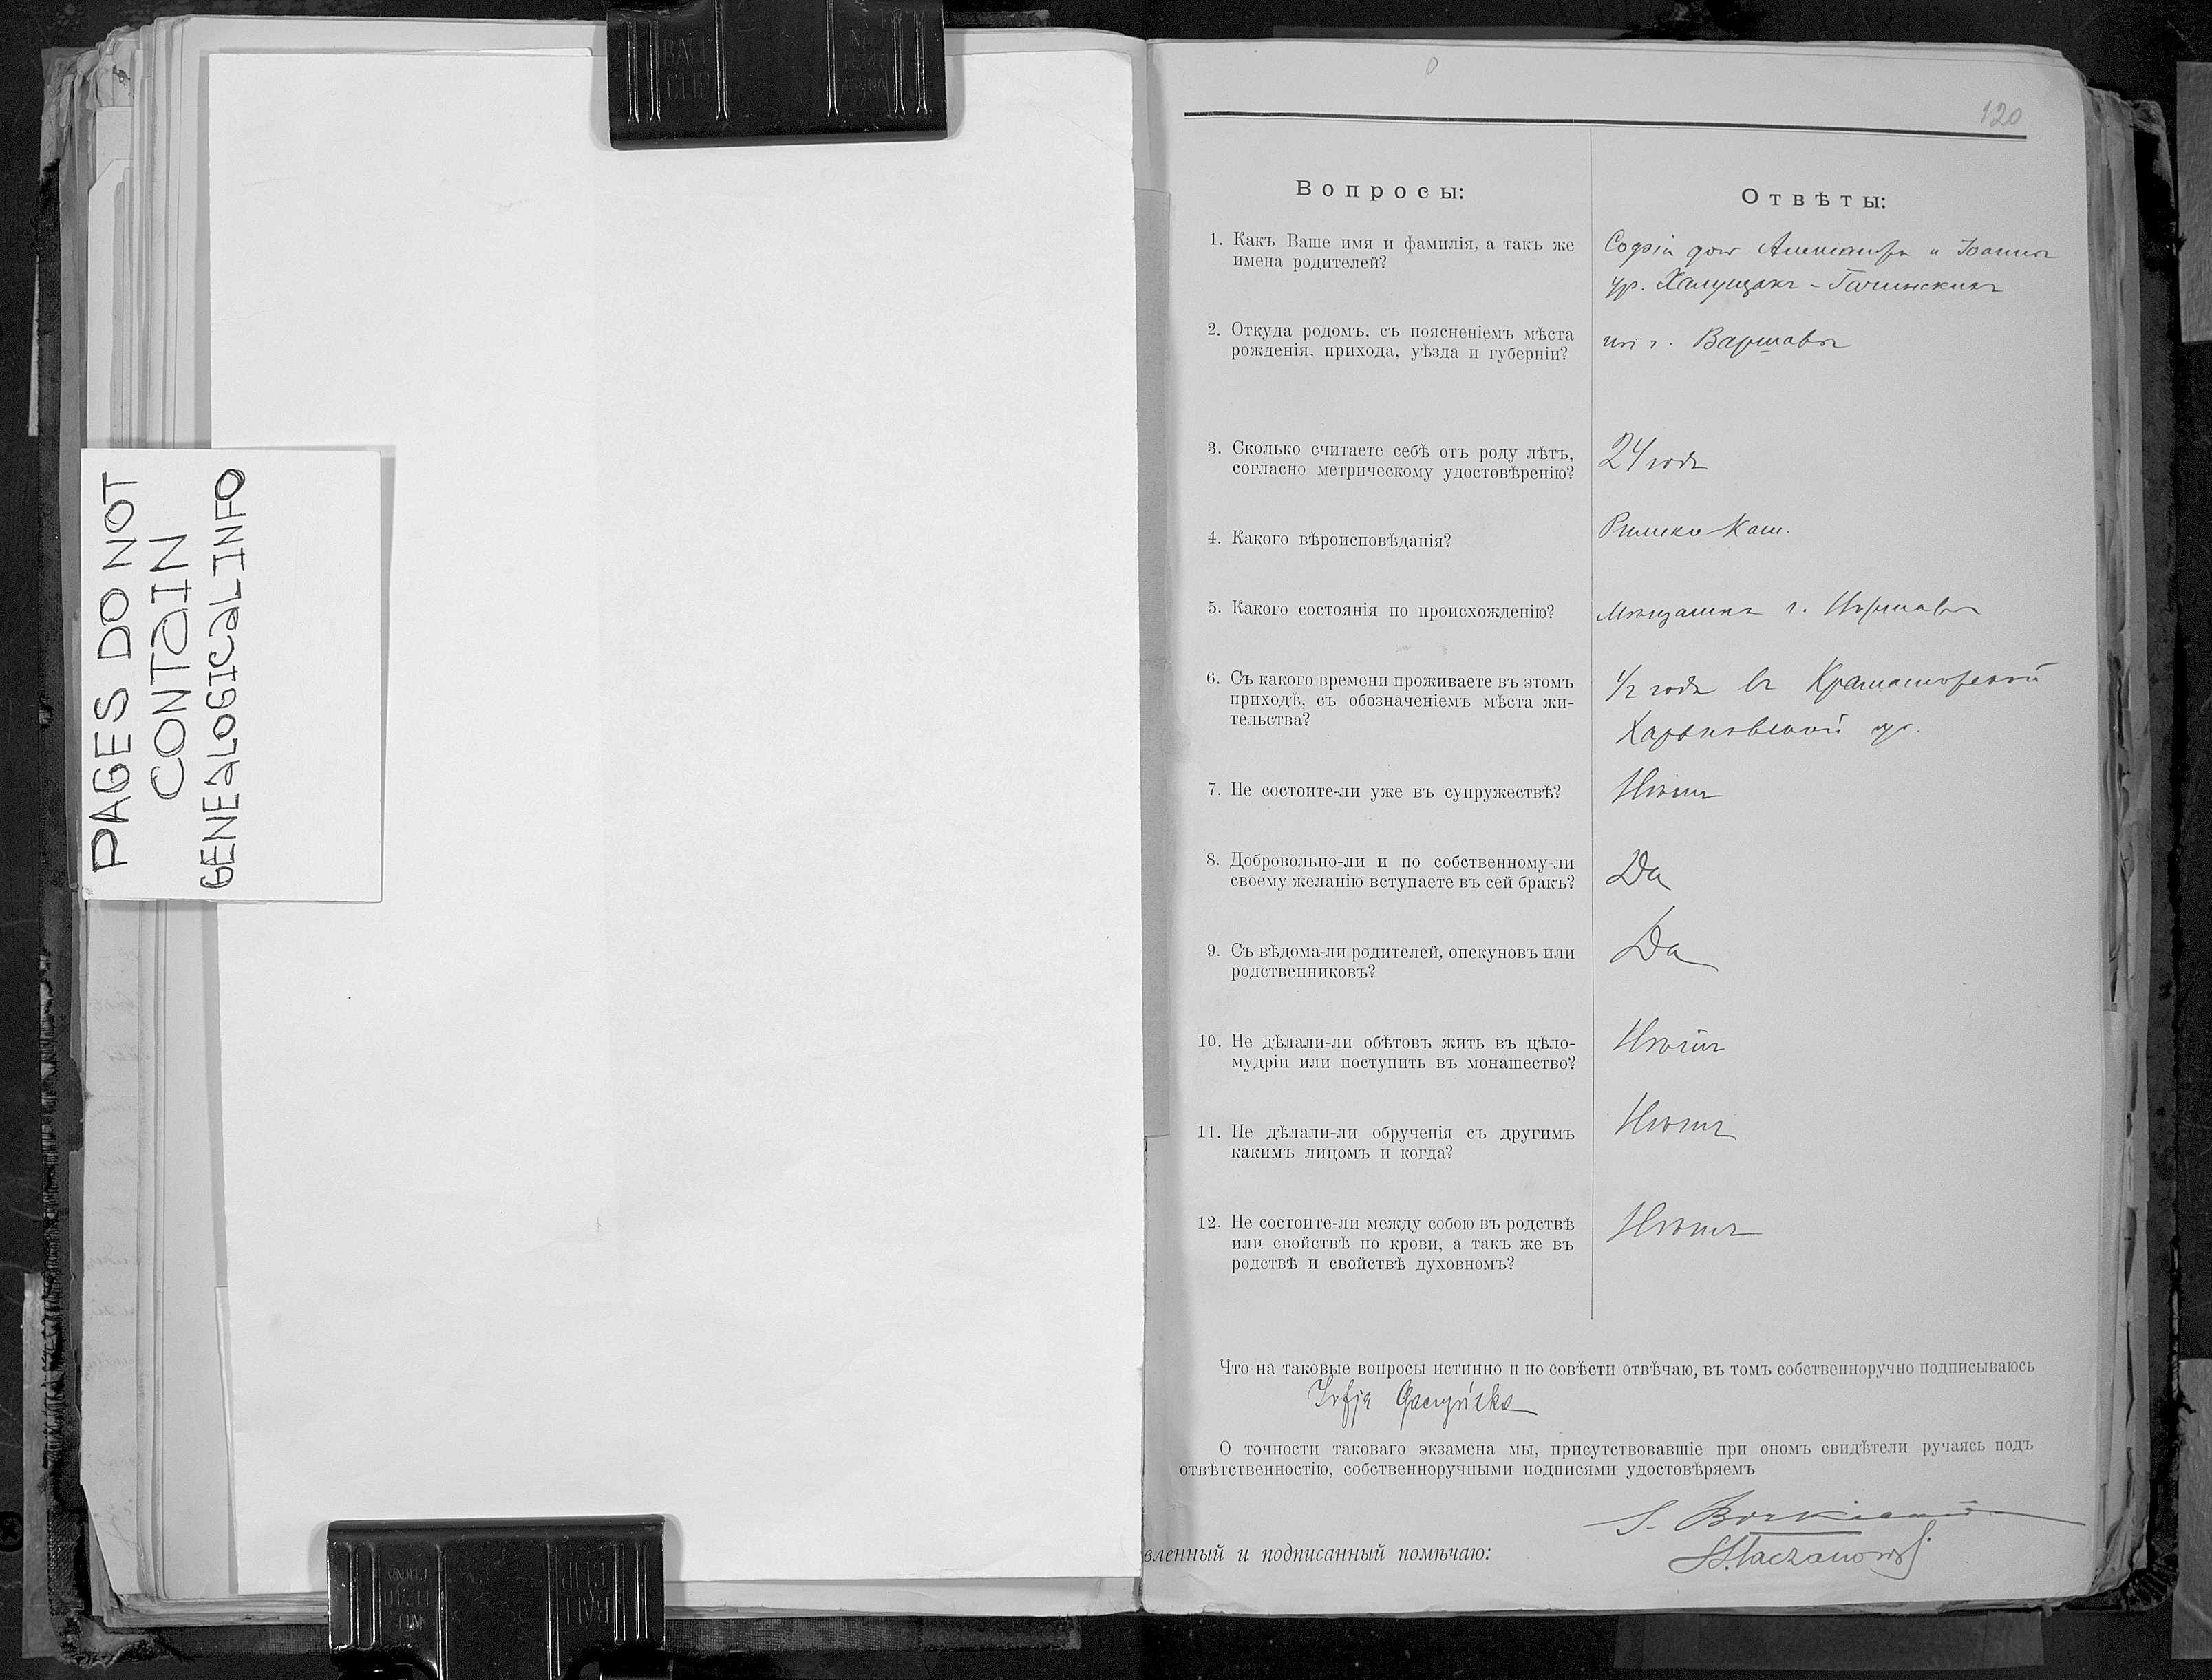 PAGES DO NOT
CONTAIN
GENEALOGICAL INFO
120
Вопросы:
Отвѣты:
1. Какъ Ваше имя и фамилія, а такъ же
имена родителей?
Софія дочь Александра и Іоанны
ур. Халущакъ-Гачинскихъ
2. Откуда родомъ, съ поясненіемъ мѣста
рожденія, прихода, уѣзда и губерніи?
изъ г. Варшавы
3. Сколько считаете себѣ отъ роду лѣтъ,
согласно метрическому удостовѣренію?
24 года
4. Какого вѣроисповѣданія?
Римско-Кат.
5. Какого состоянія по происхожденію?
Мѣщанка г.
6. Съ какого времени проживаете въ этомъ
приходѣ, съ обозначеніемъ мѣста жи-
тельства?
1/2 года въ Краматорской
Харьковской гр.
7. Не состоите-ли уже въ супружествѣ?
Нѣтъ
8. Добровольно-ли и по собственному-ли
своему желанію вступаете въ сей бракъ?
Да
9. Съ вѣдома-ли родителей, опекуновъ или
родственниковъ?
Да
10. Не дѣлали-ли обѣтовъ жить въ цѣло-
мудріи или поступить въ монашество?
Нѣтъ
11. Не дѣлали-ли обрученія съ другимъ
какимъ лицомъ и когда?
Нѣтъ
12. Не состоите-ли между собою въ родствѣ
или свойствѣ по крови, а такъ же въ
родствѣ и свойствѣ духовномъ?
Нѣтъ
Что на таковые вопросы истинно и по совѣсти отвѣчаю, въ томъ собственноручно подписываюсь
Zofja Gaczyńska
О точности таковаго экзамена мы, присутствовавшіе при ономъ свидѣтели ручаясь подъ
отвѣтственностію, собственноручными подписями удостовѣряемъ
S.
вленный и подписанный помѣчаю: